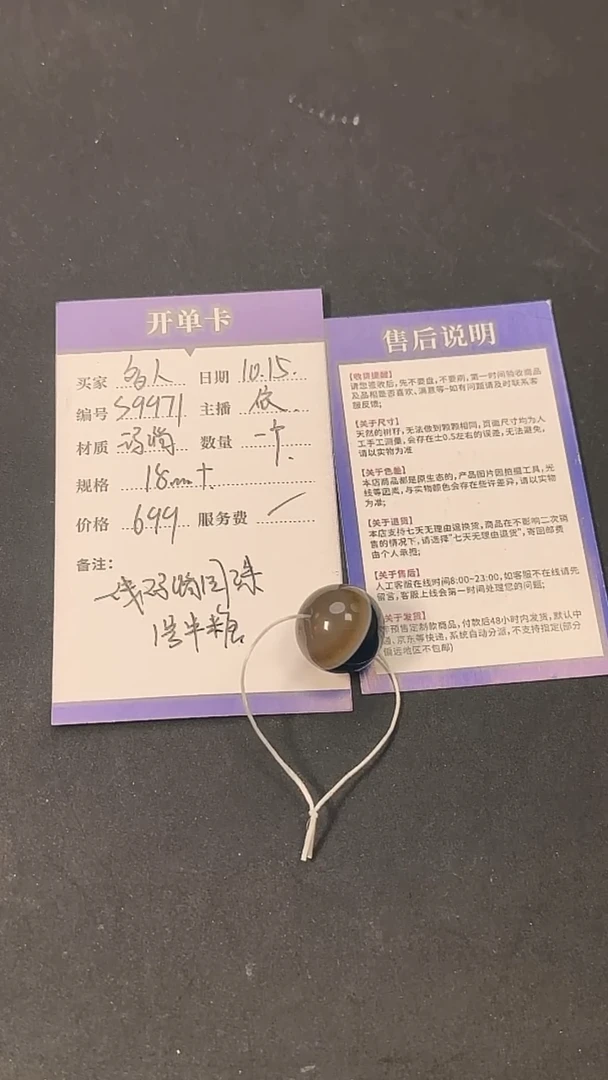 开单卡
买家 名人 日期 10.15.
编号 S9971 主播 依
材质 玛瑙 数量 一个
规格 18mm十
价格 699 服务费
备注:
一线玛瑙圆珠
1号半糖
售后说明
【收货提醒】
请您签收后,先不要盘,不要刷,第一时间验收商品
及品相是否喜欢、满意等-如有问题请及时联系客
服反馈;
【关于尺寸】
天然的树籽,无法做到颗颗相同,页面尺寸均为人
工手工测量,会存在±0.5左右的误差,无法避免,
请以实物为准
【关于色差】
本店商品都是原生态的,产品图片因拍摄工具,光
线等因素,与实物颜色会存在些许差异,请以实物
为准;
【关于退货】
本店支持七天无理由退换货,商品在不影响二次销
售的情况下,请选择"七天无理由退货",寄回邮费
由个人承担;
【关于售后】
人工客服在线时间8:00~23:00,如客服不在线请先
留言,客服上线会第一时间处理您的问题;
关于发货】
预售定制款商品,付款后48小时内发货,默认中
通、京东等快递,系统自动分派,不支持指定(部分
偏远地区不包邮)